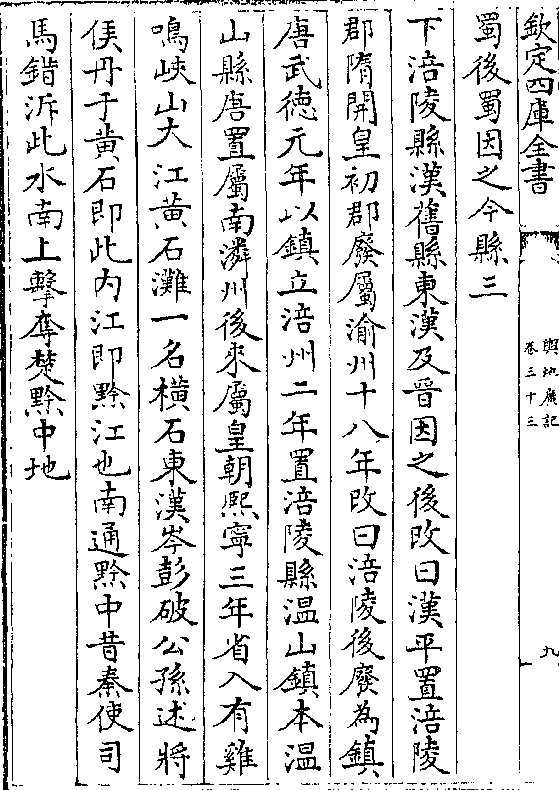 欽定四庫全書
輿地廣記
卷三十三
九
蜀後蜀因之今縣三
下涪陵縣漢舊縣東漢及晉因之後改曰漢平置涪陵
郡隋開皇初郡廢屬渝州十八年改曰涪陵後廢為鎮
唐武德元年以鎮立涪州二年置涪陵縣温山鎮本温
山縣唐置屬南潾州後來屬皇朝熙寧三年省入有雞
鳴峽山大江黄石灘一名横石東漢岑彭破公孫述將
侯丹于黄石即此内江即黔江也南通黔中昔秦使司
馬錯泝此水南上擊奪楚黔中地